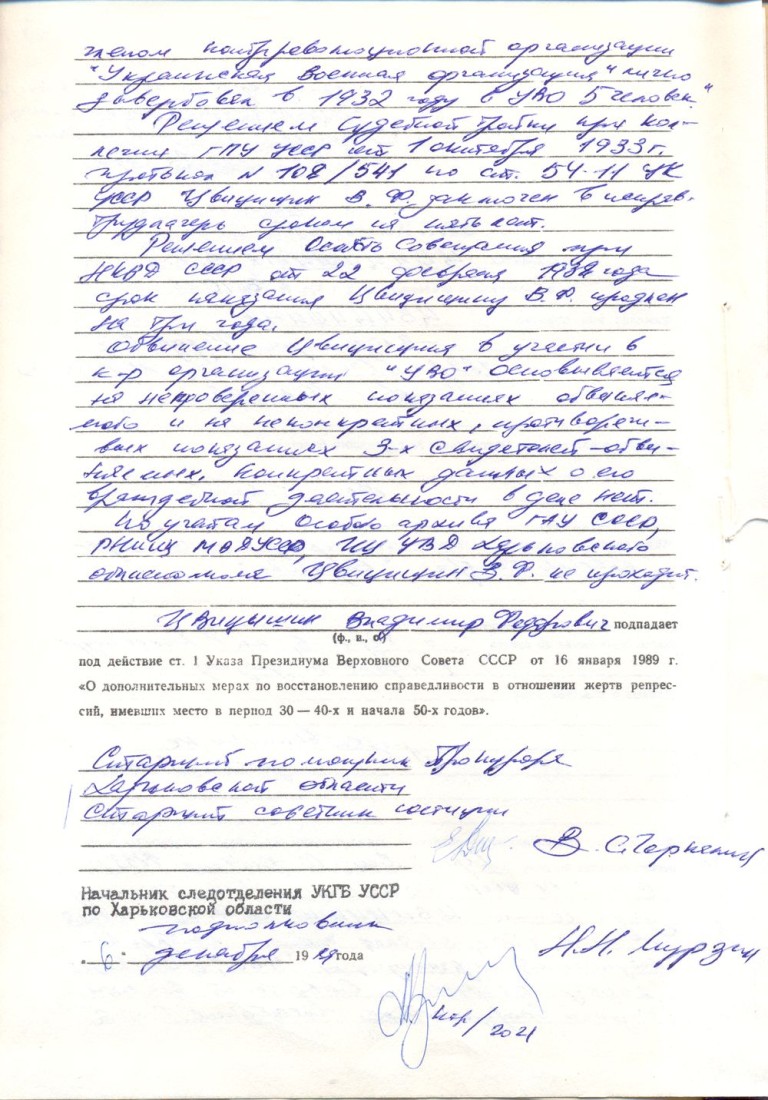 членом контрреволюционной организации
"Украинская Военная организация" лично
завербовал в 1932 году в УВО 5 человек."
Решением Судебной тройки при кол-
легии ГПУ УССР от 1 октября 1933 г.
протокол N 108/541 по ст. 54-11 УК
УССР Цвицишин В.Ф. заключен в исправ.
трудлагерь сроком на пять лет.
Решением Особ. Совещания при
НКВД СССР от 22 февраля 1938 года
срок наказания Цвицишину В.Ф. продлен
на три года.
Обвинение Цвицишина в участии в
к-р организации "УВО" основывается
на непроверенных показаниях обвиняе-
мого и на неконкретных, противоречи-
вых показаниях 3-х свидетелей-обви-
няемых. Конкретных данных о его
враждебной деятельности в деле нет.
По учетам Особого архива ГАУ СССР,
МВД УССР, ИЦ УВД Харьковского
облисполкома Цвицишин В.Ф. не проходит.
Цвицышин Владимир Федорович подпадает
(ф., и., о.)
под действие ст. 1 Указа Президиума Верховного Совета СССР от 16 января 1989 г.
«О дополнительных мерах по восстановлению справедливости в отношении жертв репрес-
сий, имевших место в период 30—40-х и начала 50-х годов».
Старший помощник Прокурора
Харьковской области
Старший советник юстиции
В.
Начальник следотделения УКГБ УССР
по Харьковской области
подполковник
Н.Н. Мурзин
"6" декабря 1989 года